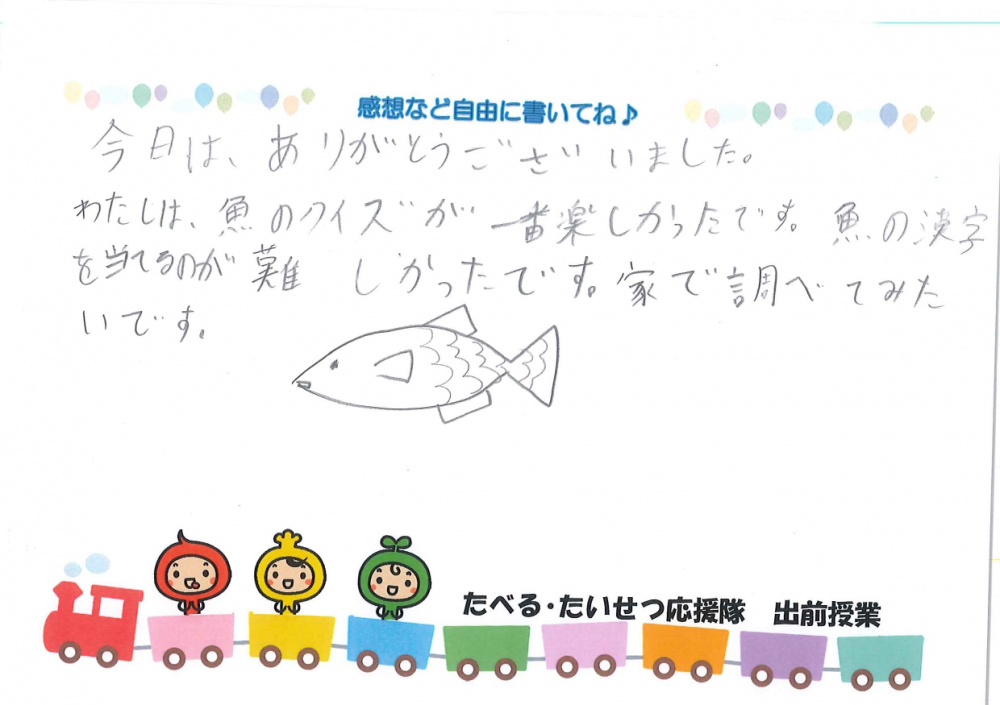 感想など自由に書いてね♪
今日は、ありがとうございました。
わたしは、魚のクイズが一番楽しかったです。魚の漢字
を当てるのが難しかったです。家で調べてみた
いです。
たべる・たいせつ応援隊 出前授業